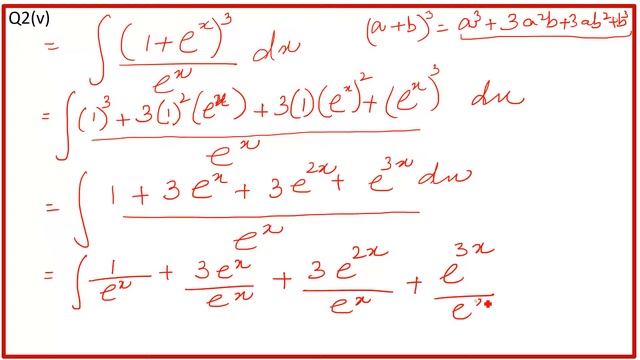 Q2(v)
= ∫ (1+e^x)^3 / e^x dx
(a+b)^3 = a^3 + 3a^2b+3ab^2+b^3
= ∫ (1)^3 + 3(1)^2(e^x) + 3(1)(e^x)^2 + (e^x)^3 / e^x dx
= ∫ 1 + 3e^x + 3e^2x + e^3x / e^x dx
= ∫ 1/e^x + 3e^x/e^x + 3e^2x/e^x + e^3x/e^x